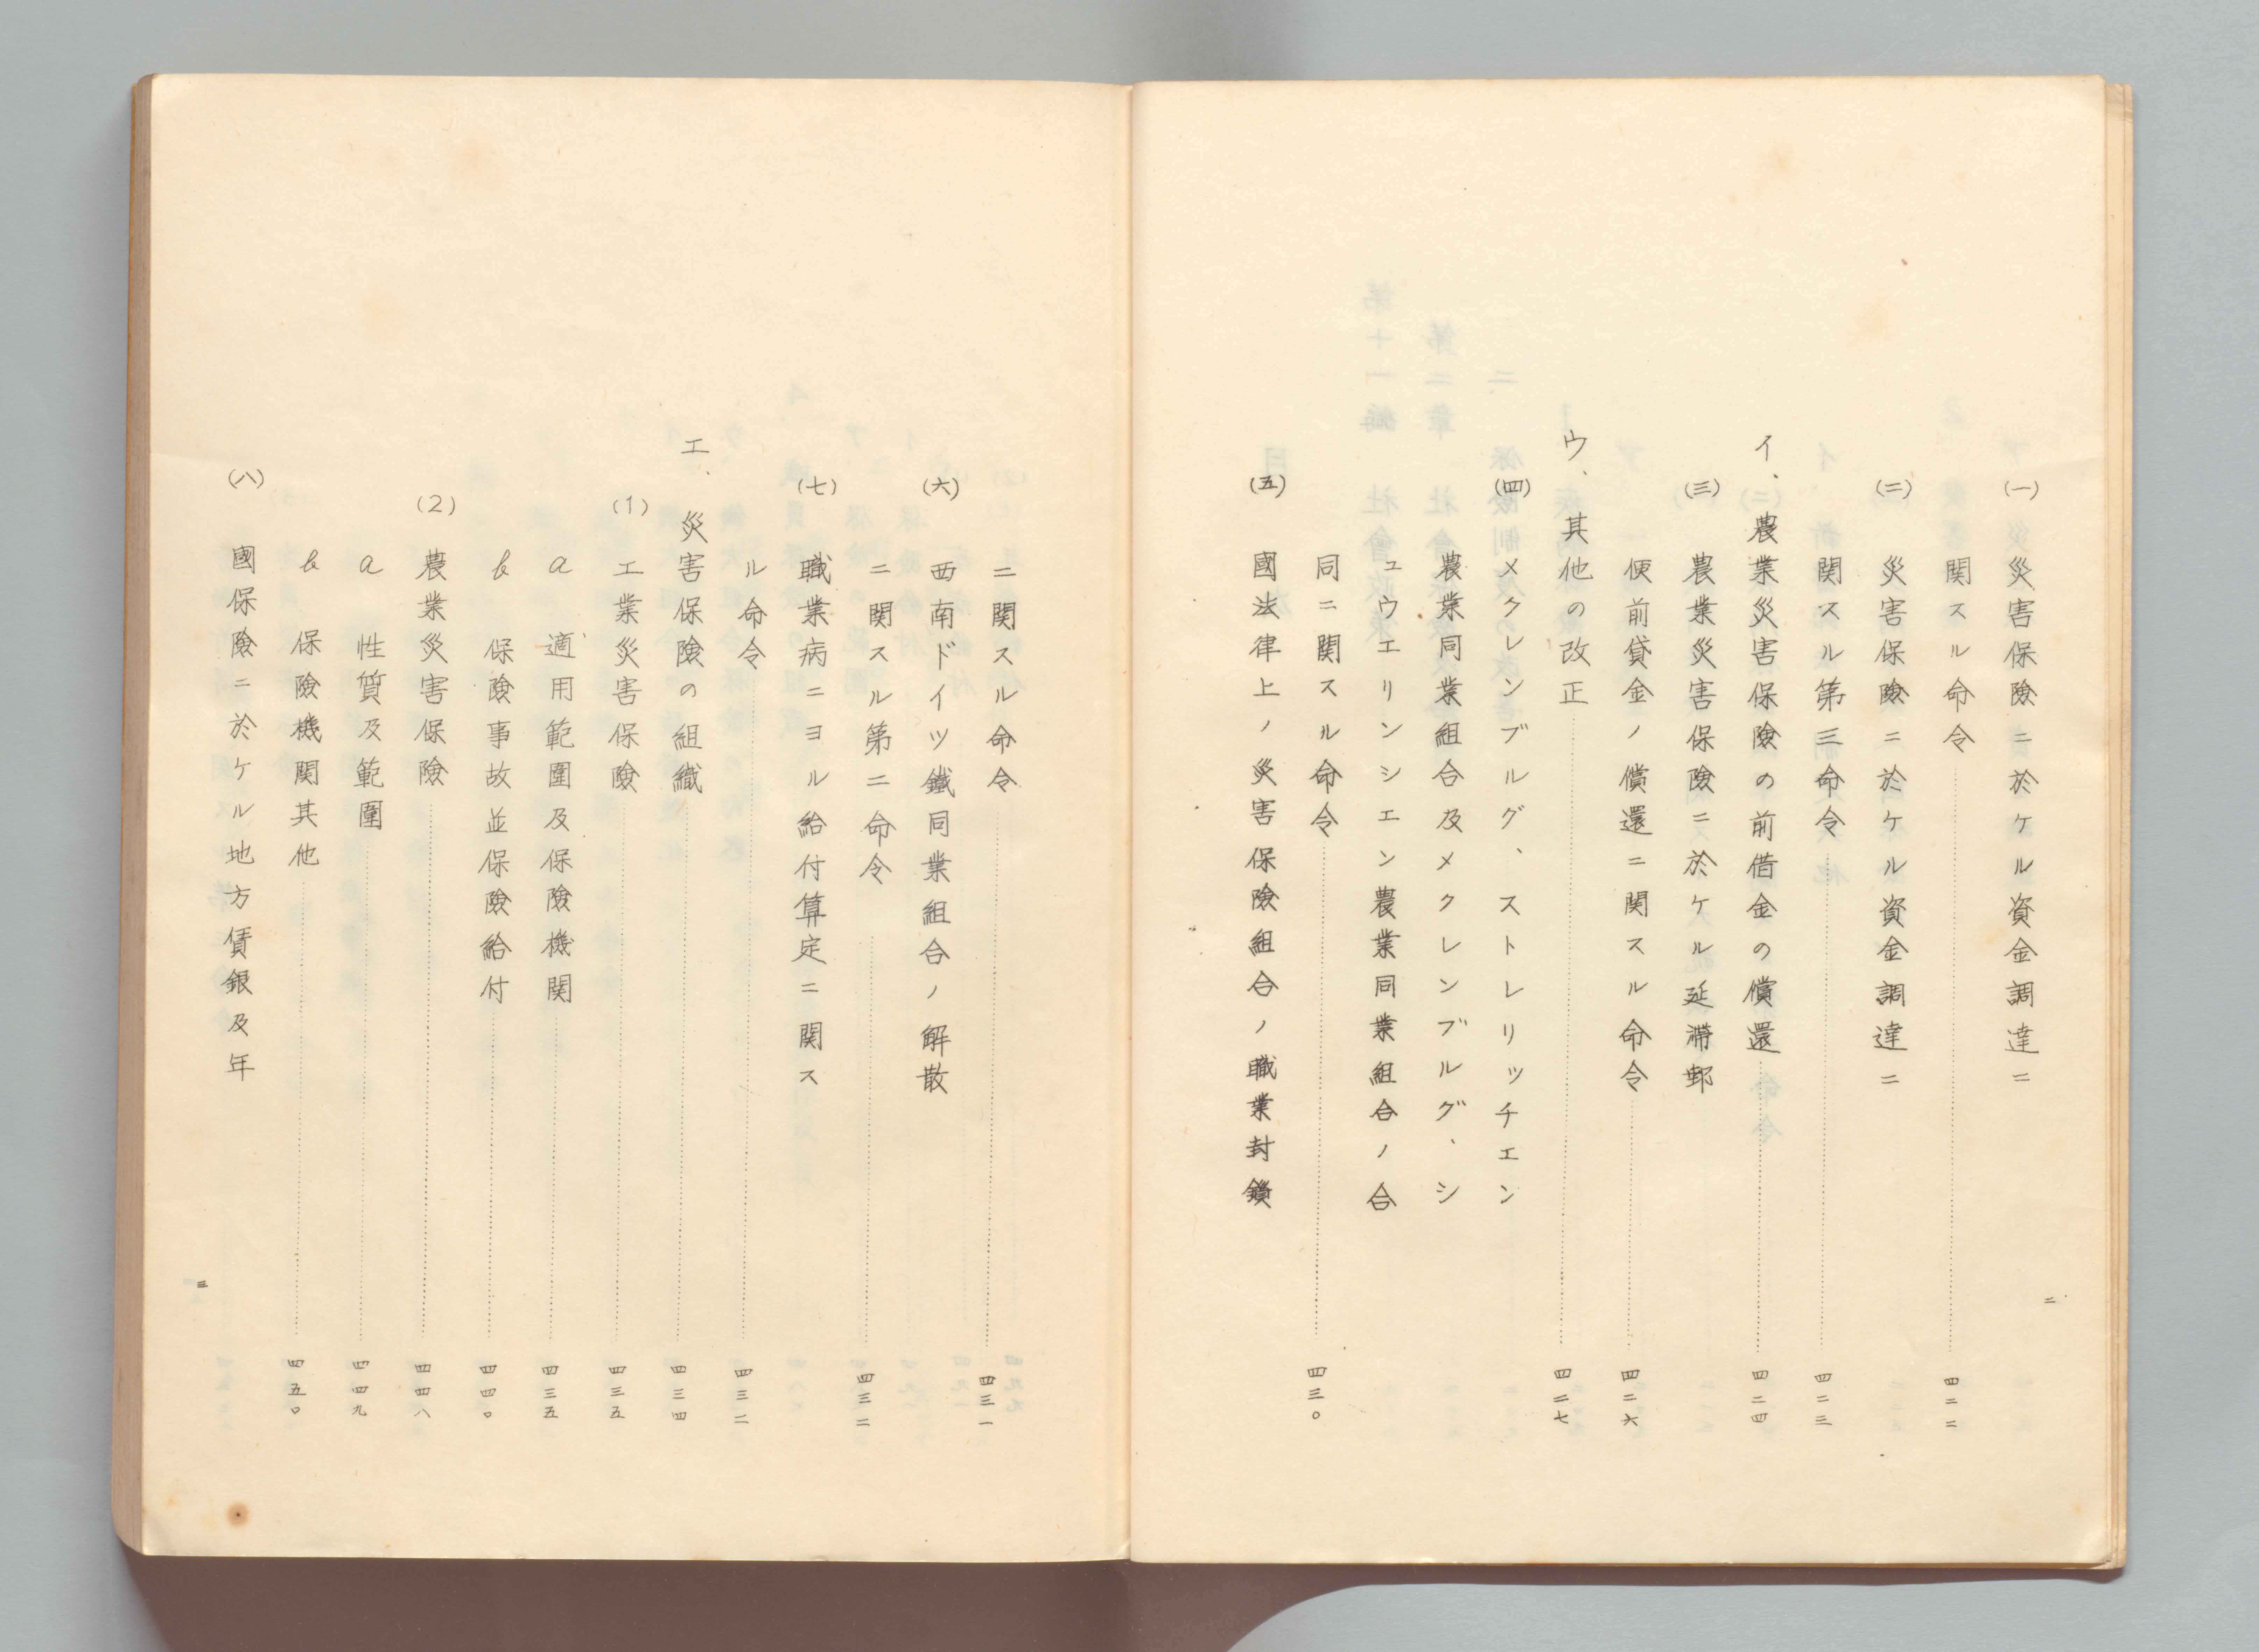 (一) 災害保險ニ於ケル資金調達ニ
関スル命令 四二二
(二) 災害保險ニ於ケル資金調達ニ
関スル第三命令 四二三
イ、農業災害保險の前借金の償還 四二四
(三) 農業災害保險ニ於ケル延滯郵
便前貸金ノ償還ニ関スル命令 四二六
ウ、其他の改正 四二七
(四) メクレンブルグ、ストレリッチエン
農業同業組合及メクレンブルグ、シ
ュウエリンシエン農業同業組合ノ合
同ニ関スル命令 四三〇
(五) 國法律上ノ災害保險組合ノ職業封鎖
二
ニ関スル命令 四三一
(六) 西南ドイツ鐵同業組合ノ解散
ニ関スル第二命令 四三二
(七) 職業病ニヨル給付算定ニ関ス
ル命令 四三二
エ、災害保險の組織 四三四
(1) 工業災害保險 四三五
a 適用範圍及保險機関 四三五
b 保險事故並保險給付 四四〇
(2) 農業災害保險 四四八
a 性質及範圍 四四九
b 保險機関其他 四五〇
(八) 國保險ニ於ケル地方賃銀及年
三